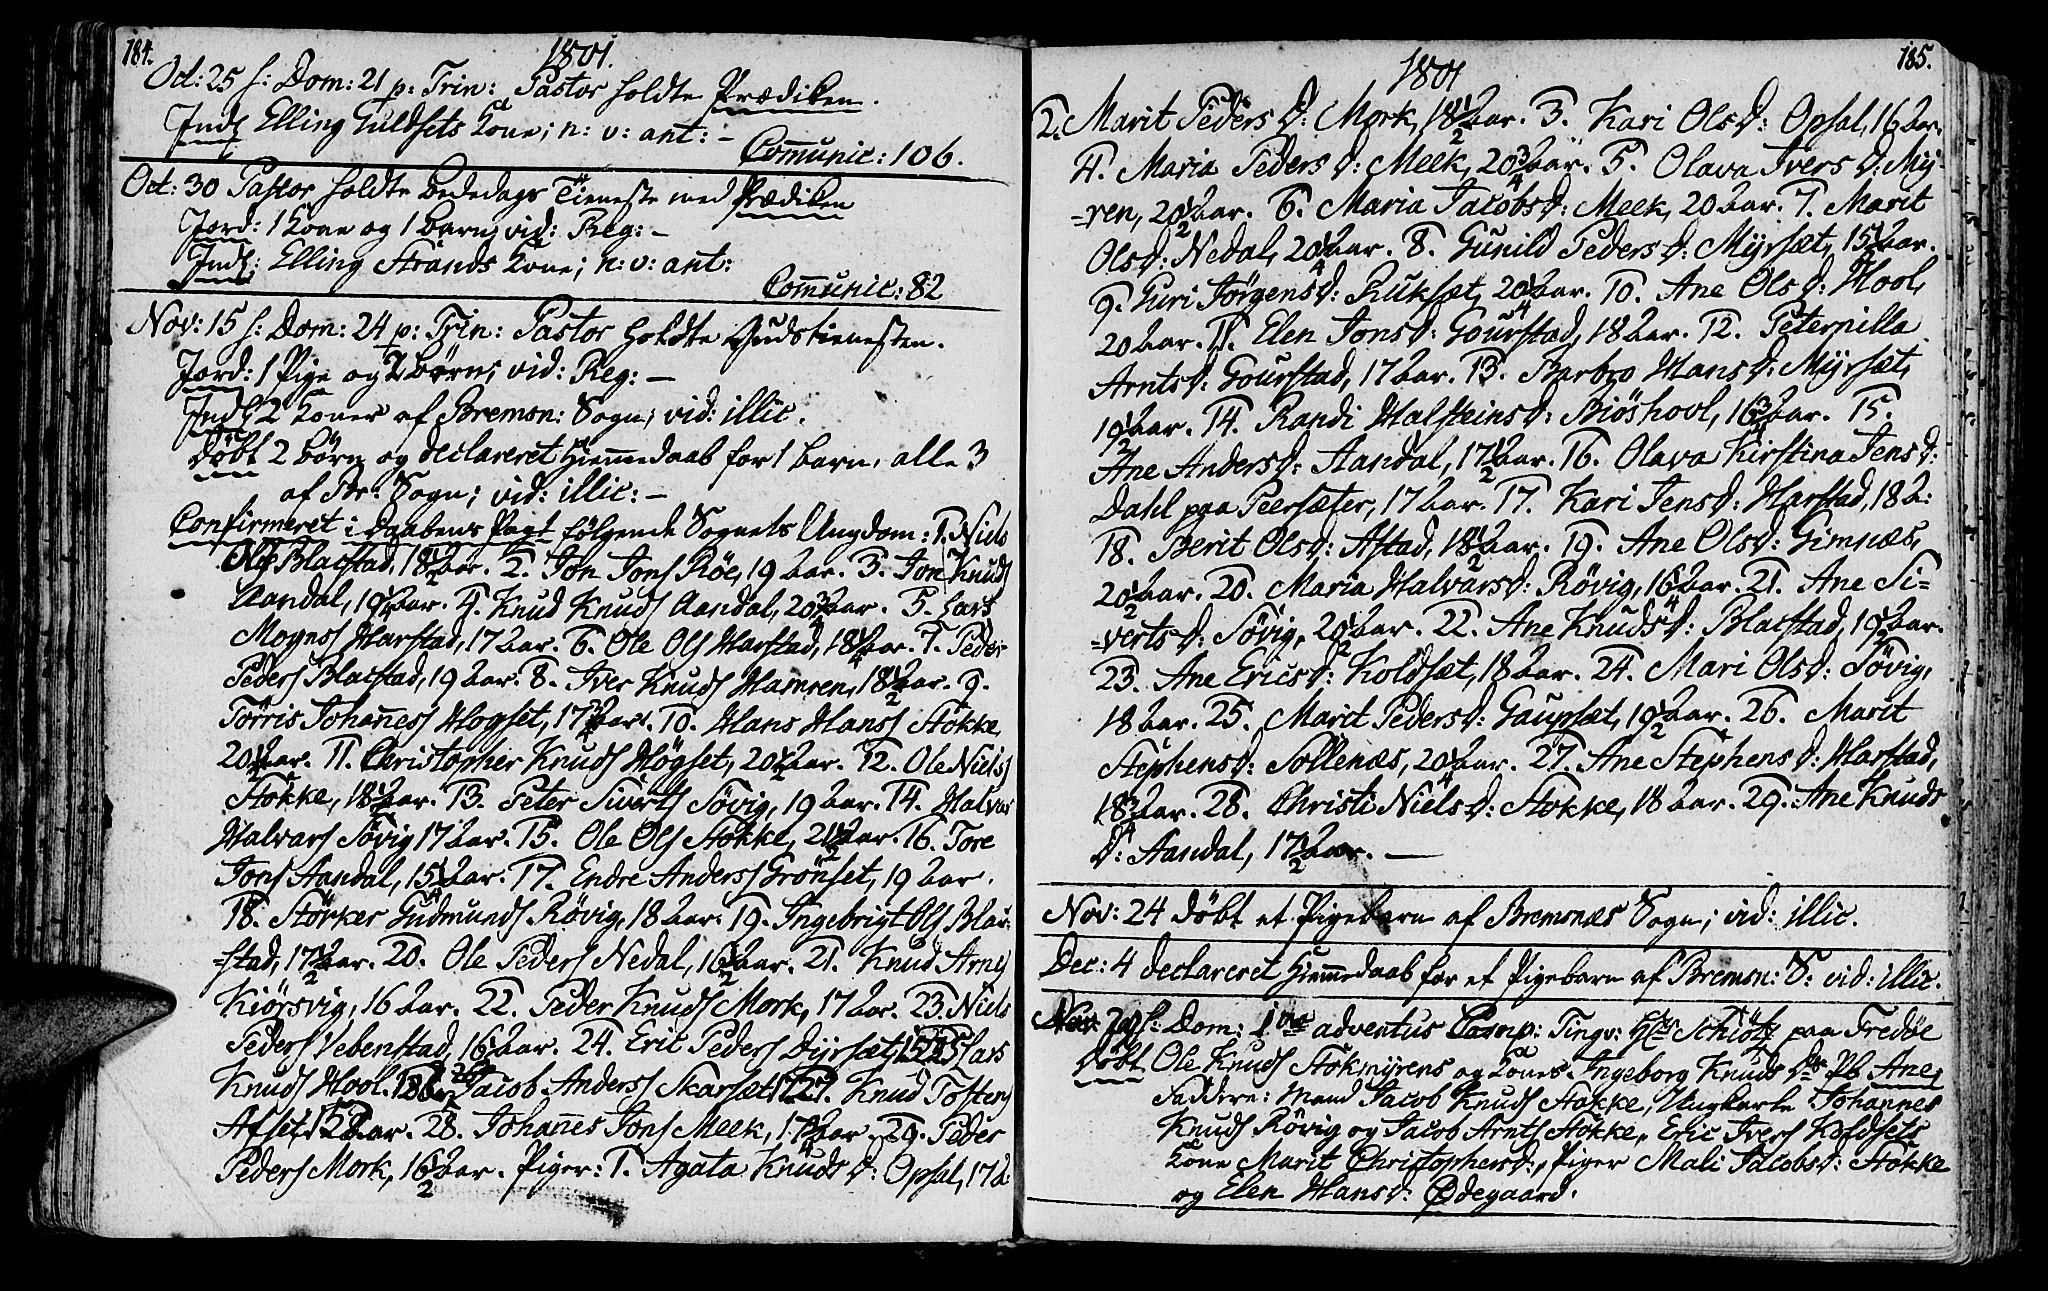 184.
1801.
Oct: 25 s: Dom: 21 p: Trin: Pastor holdte Prædiken.
Indl Elling Guldsets Kone; n: v: ant: –
Comunic: 106.
Oct: 30 Pastor holdte Bededags Tieneste med Prædiken
Jord: 1 Kone og 1 barn; vid: Reg: –
Indl: Elling Strands Kone; n: v: ant:
Comunic: 82
Nov: 15 s: Dom: 24 p: Trin: Pastor holdte Gudstienesten.
Jord: 1 Pige og 2 børn; vid: Reg: –
Indl 2 Koner af Bremsn: Sogn; vid: illic.
Døbt 2 børn og declareret Hiemedaab for 1 barn, alle 3
af Br: Sogn; vid: illic: –
Confirmeret i Daabens Pagt følgende Sognets Ungdom: 1. Niels
Ols Blacstad, 18 1/2 aar. 2. Jon Jons Røe, 19 aar. 3. Jon Knuds
Aandal, 19 aar. 4. Knud Knuds Aandal, 20 3/4 aar. 5. Lars
Mognes Harstad, 17 aar. 6. Ole Ols Harstad, 18 1/4 aar. 7. Peder
Peders Blacstad, 19 aar. 8. Iver Knuds Hamren, 18 1/2 aar. 9.
Tørris Johanes Hogset, 17 aar. 10. Hans Hans Stokke
20 1/2 aar. 11. Christopher Knuds Høgset, 20 1/2 aar. 12. Ole Niels
Stokke, 18 1/2 aar. 13. Peter Siverts Søvig, 19 aar. 14. Halvar
Halvars Søvig 17 aar. 15. Ole Ols Stokke, 21 1/2 aar. 16. Tore
Jons Aandal, 15 aar. 17. Endre Anders Grønset, 19 aar.
18. Størker Gudmunds Røvig, 18 aar. 19. Ingebrigt Ols Blac-
-stad, 17 1/2 aar. 20. Ole Peders Nedal, 16 1/2 aar. 21. Knud Arnes
Kiørsvig, 16 aar. 22. Peder Knuds Mork, 17 aar. 23. Niels
Peders Vebenstad, 16 aar. 24. Eric Peders Dyrsæt, 15 25 Lars
Knuds Hool 18 26 Jacob Anders Skarsæt 27. Knud Tostens
Afset, aar. 28. Johanes Jons Meek, 17 aar 29. Peder
Peders Mork, 16 1/2 aar. Piger: 1. Agata Knuds D: Opsal, 17 a
185.
1801
2. Marit Peders D: Mork, 18 1/2 aar. 3. Kari Ols D: Opsal, 16 aar.
4. Maria Peders D: Meek, 20 3/4 aar. 5. Olava Ivers D: Myr-
-ren, 20 1/2 aar. 6. Maria Jacobs D: Meek, 20 aar. 7. Marit
Ols D: Nedal, 20 1/4 aar. 8. Gunild Peders D: Myrsæt, 15 aar.
9. Guri Jørgens D: Ruksæt, 20 1/4 aar. 10. Ane Ols D: Hool,
20 aar. 11. Elen Jons D: Gourstad, 18 aar. 12. Peternilla
Arnts D: Gourstad, 17 aar. 13. Barbro Hans D: Myrsæt,
19 1/2 aar. 14. Randi Halsteins D: Biøshovl, 16 3/4 aar. 15.
Ane Anders D: Aandal, 17 1/2 aar. 16. Olava Kirstina Jens D:
Dahl paa Peersæter, 17 aar. 17. Kari Jens D: Harstad, 18 a:
18. Berit Ols D: Astad, 18 1/2 aar. 19. Ane Ols D: Gimnæs,
20 1/2 aar. 20. Maria Halvars D: Røvig, 16 1/4 aar. 21. Ane Si-
-verts D: Søvig, 20 1/2 aar. 22. Ane Knuds D: Blacstad, 19 1/2 aar.
23. Ane Erics D: Koldsæt, 18 aar. 24. Mari Ols D: Søvig,
18 aar. 25. Marit Peders D: Gaupsæt, 19 1/2 aar. 26. Marit
Stephens D: Sollenæs, 20 1/4 aar. 27. Ane Stephens D: Harstad,
18 3/4 aar. 28. Christi Niels D: Stokke, 18 aar. 29. Ane Knuds
D: Aandal, 17 1/2 aar. –
Nov: 24 døbt et Pigebarn af Bremsnæs Sogn; vid: illic.
Dec: 4 declareret Hiemedaab for et Pigebarn af Bremsn: S: vid: illic.
Nov 29 s: Dom: 1ma adventus Comp: Tingv: Schiøtz paa Fredøe
Døbt Ole Knuds Stokmyrens og Kones Ingeborg Knuds Drs Pb Ane;
Faddere: Mand Jacob Knuds Stokke, Ungkarle Johannes
Knuds Røvig og Jacob Arnts Stokke, Eric Ivers Koldsets
Kone Marit Christophers D:, Piger Mali Jacobs D: Stokke
og Elen Hans D: Ødegaard.